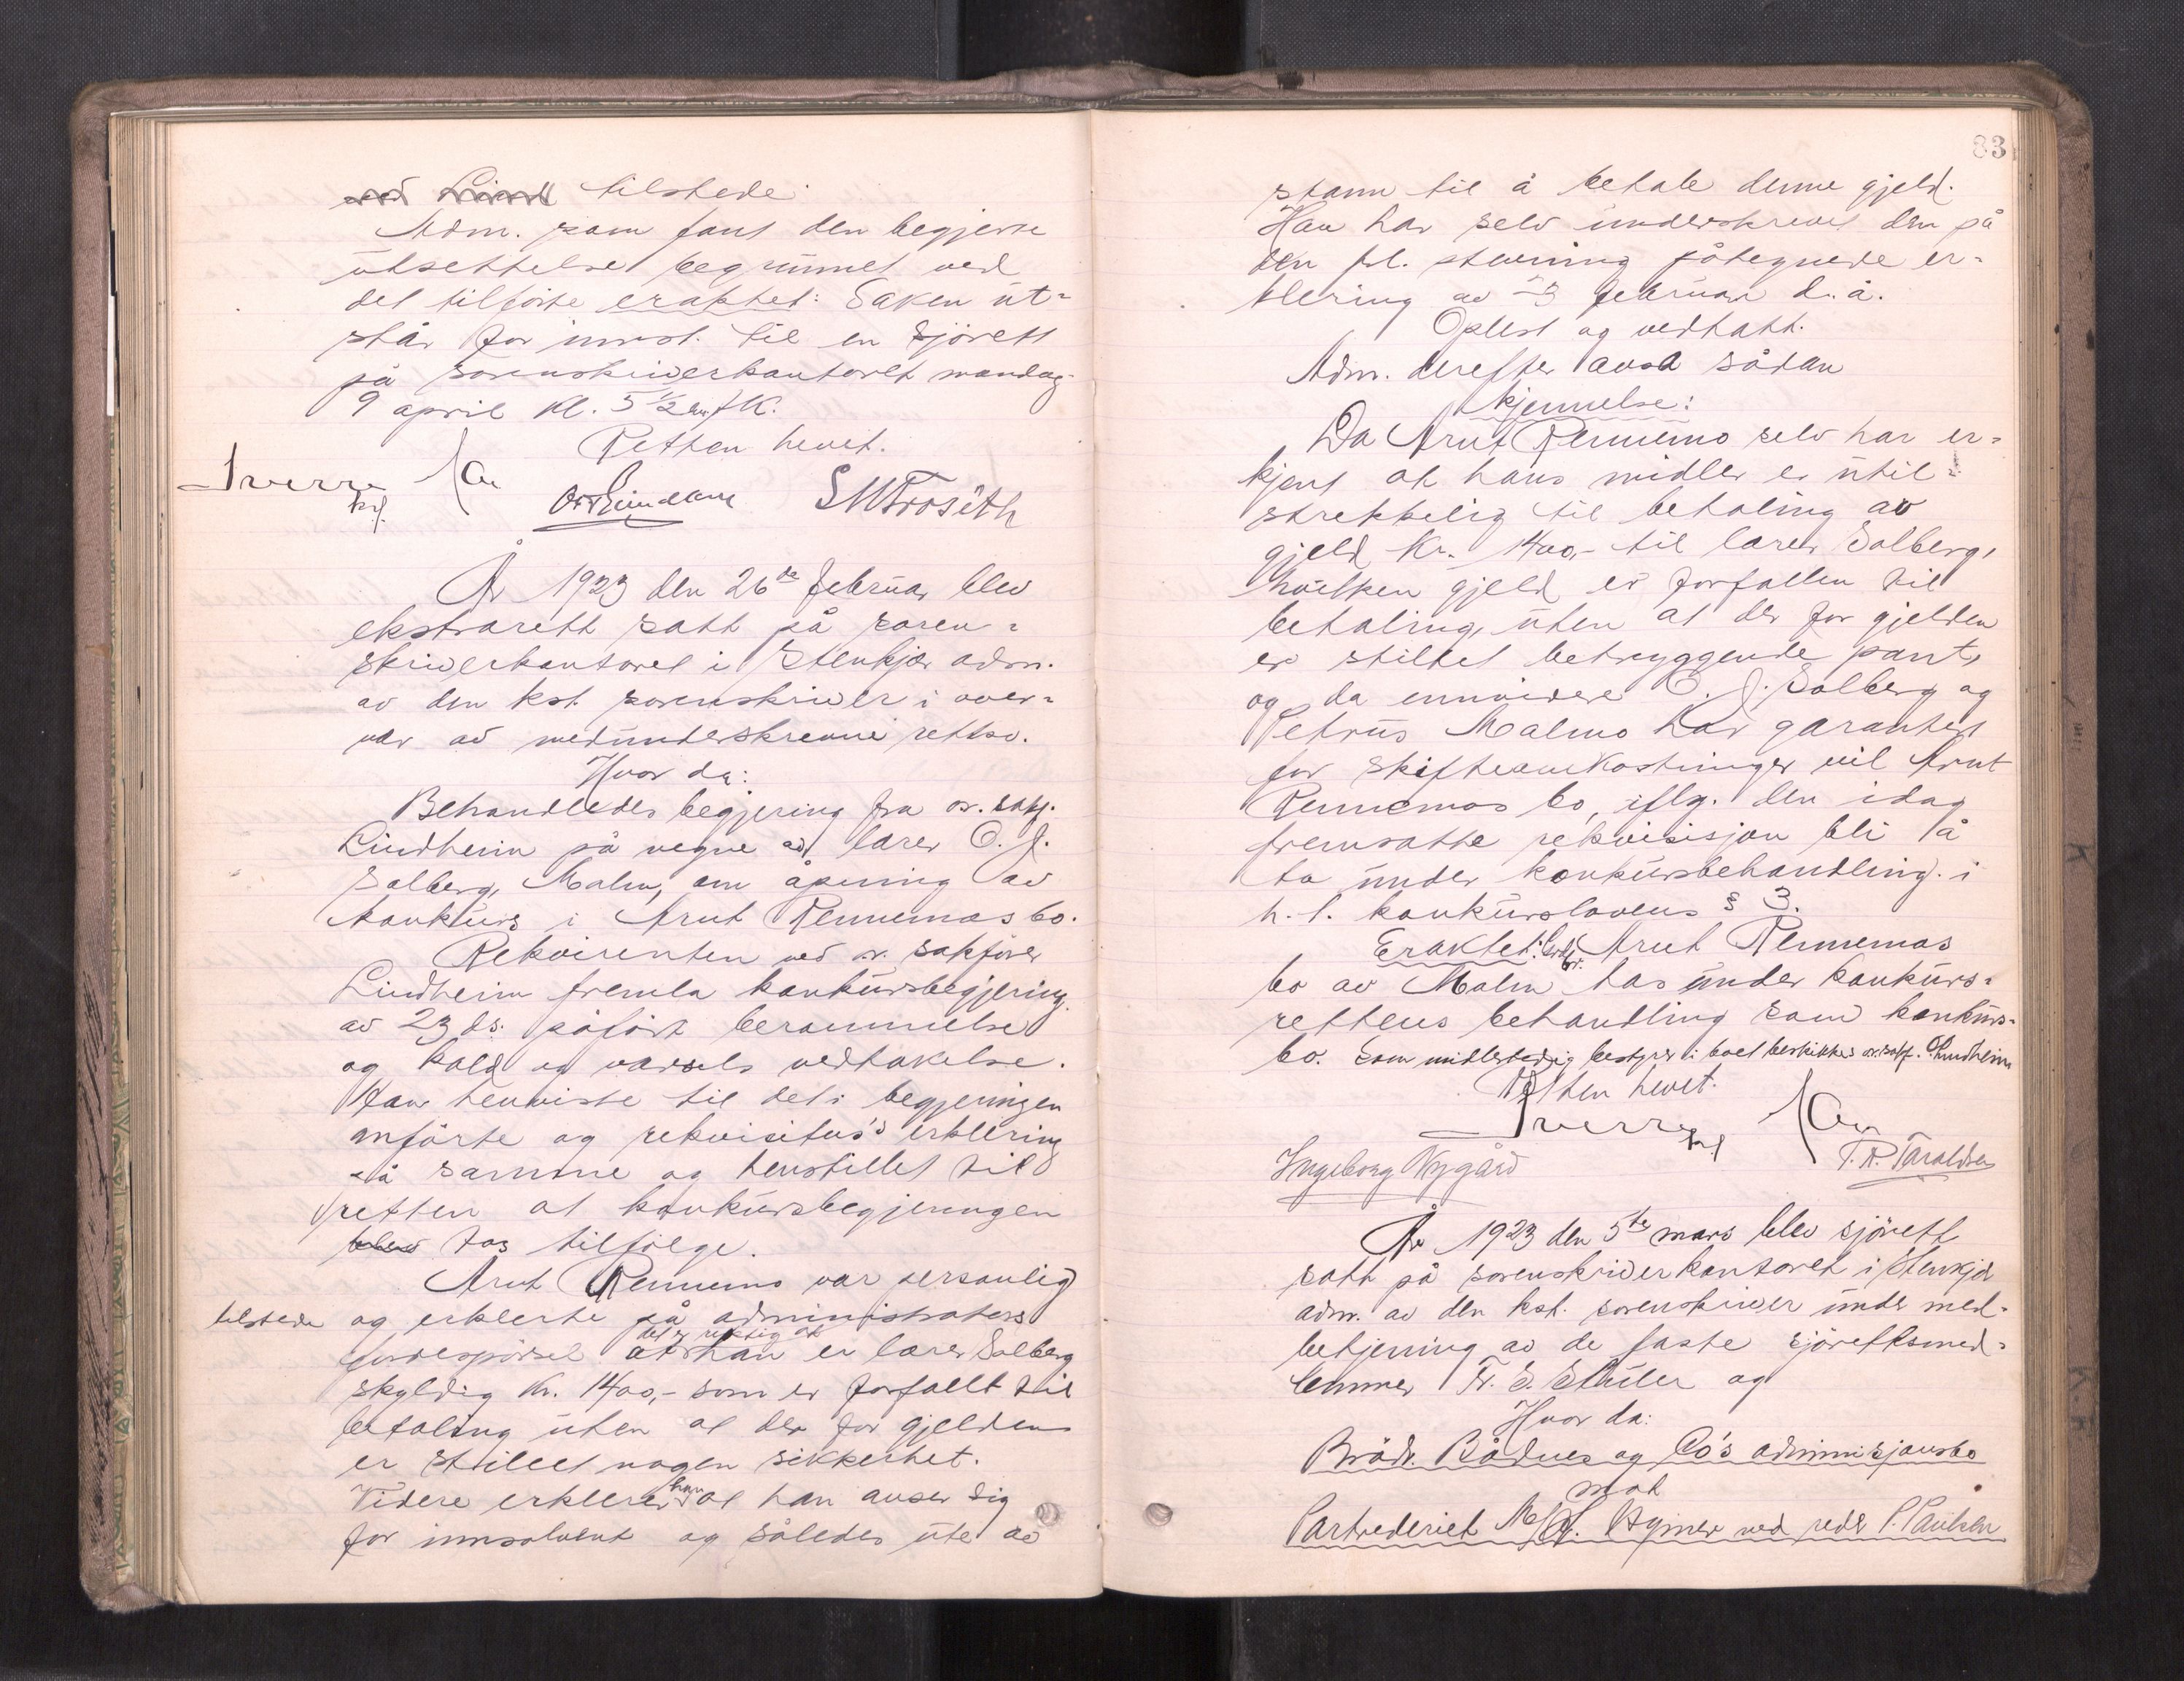 ved Lind tilstede
Adm. som fant den begjerte
utsettelse begrunnet ved
det tilførte eraktet: Saken ut-
står for innst. til en sjørett
på sorenskriverkontoret mandag
9 april kl. 5 1/2 em. f K.
Retten hevet.
Sverre
kst.
S M Frøseth
År 1923 den 26de februar blev
ekstrarett satt på soren-
skriverkontoret i Stenkjær adm.
av den kst. sorenskriver i over-
vær av medunderskrevne rettsv.
Hvor da:
Behandledes begjering fra o.r. sakf.
Lindheim på vegne av lærer O. J.
Solberg, Malm, om åpning av
konkurs i Arnt Rennemos bo.
Rekvirenten ved o.r. sakfører
Lindheim fremla konkursbegjering
av 23 ds. påført berammelse
og kald og varsels vedtakelse.
Han henviste til det i begjeringen
anførte og rekvisitus's erklering
på samme og henstillet til
retten at konkursbegjeringen
blev tas tilfølge.
Arnt Rennemo var personlig
tilstede og erklerte på administrators
det er riktig at
forespørsel at han er lærer Solberg
skyldig kr. 1400,- som er forfallt til
betaling uten at der for gjelden
er stillet nogen sikkerhet.
han
Videre erklerer at han anser sig
for innsolvent og således ute av
83
stann til å betale denne gjeld.
Han har selv underskrevet den på
den frl. stevning påtegnede er-
klering av 23 februar d. å.
Oplest og vedtatt.
Adm. derefter avsa sådan
kjennelse:
Da Arnt Rennemo selv har er-
kjent at hans midler er util-
strekkelig til betaling av
gjeld kr. 1400,- til lærer Solberg,
hvilken gjeld er forfallen til
betaling, uten at der for gjelden
er stillet betryggende pant,
og da ennvidere O. J. Solberg og
Petrus Malmo har garantert
for skifteomkostninger vil Arnt
Rennemos bo, iflg. den idag
fremsatte rekvisisjon bli å
ta under konkursbehandling i
h. t. konkurslovens § 3.
Eraktet: Arnt Rennemos
bo av Malm tas under konkurs-
rettens behandling som konkurs-
bo. Som midlertidig bestyrer i boet beskikkes o.r.sakf. Lindheim
Retten hevet.
Sverre
kst.
Ingeborg Nygård
T. R. Taraldsen
År 1923 den 5te mars blev sjørett
satt på sorenskriverkontoret i Stenkjær
adm. av den kst. sorenskriver under med-
betjening av de faste sjørettsmed-
lemmer Fr. E. Schüler og
Hvor da:
Brødr. Bådnes og Co's administrasjonsbo
mot
Partrederiet M/K. Hymer ved reder P. Paulsen